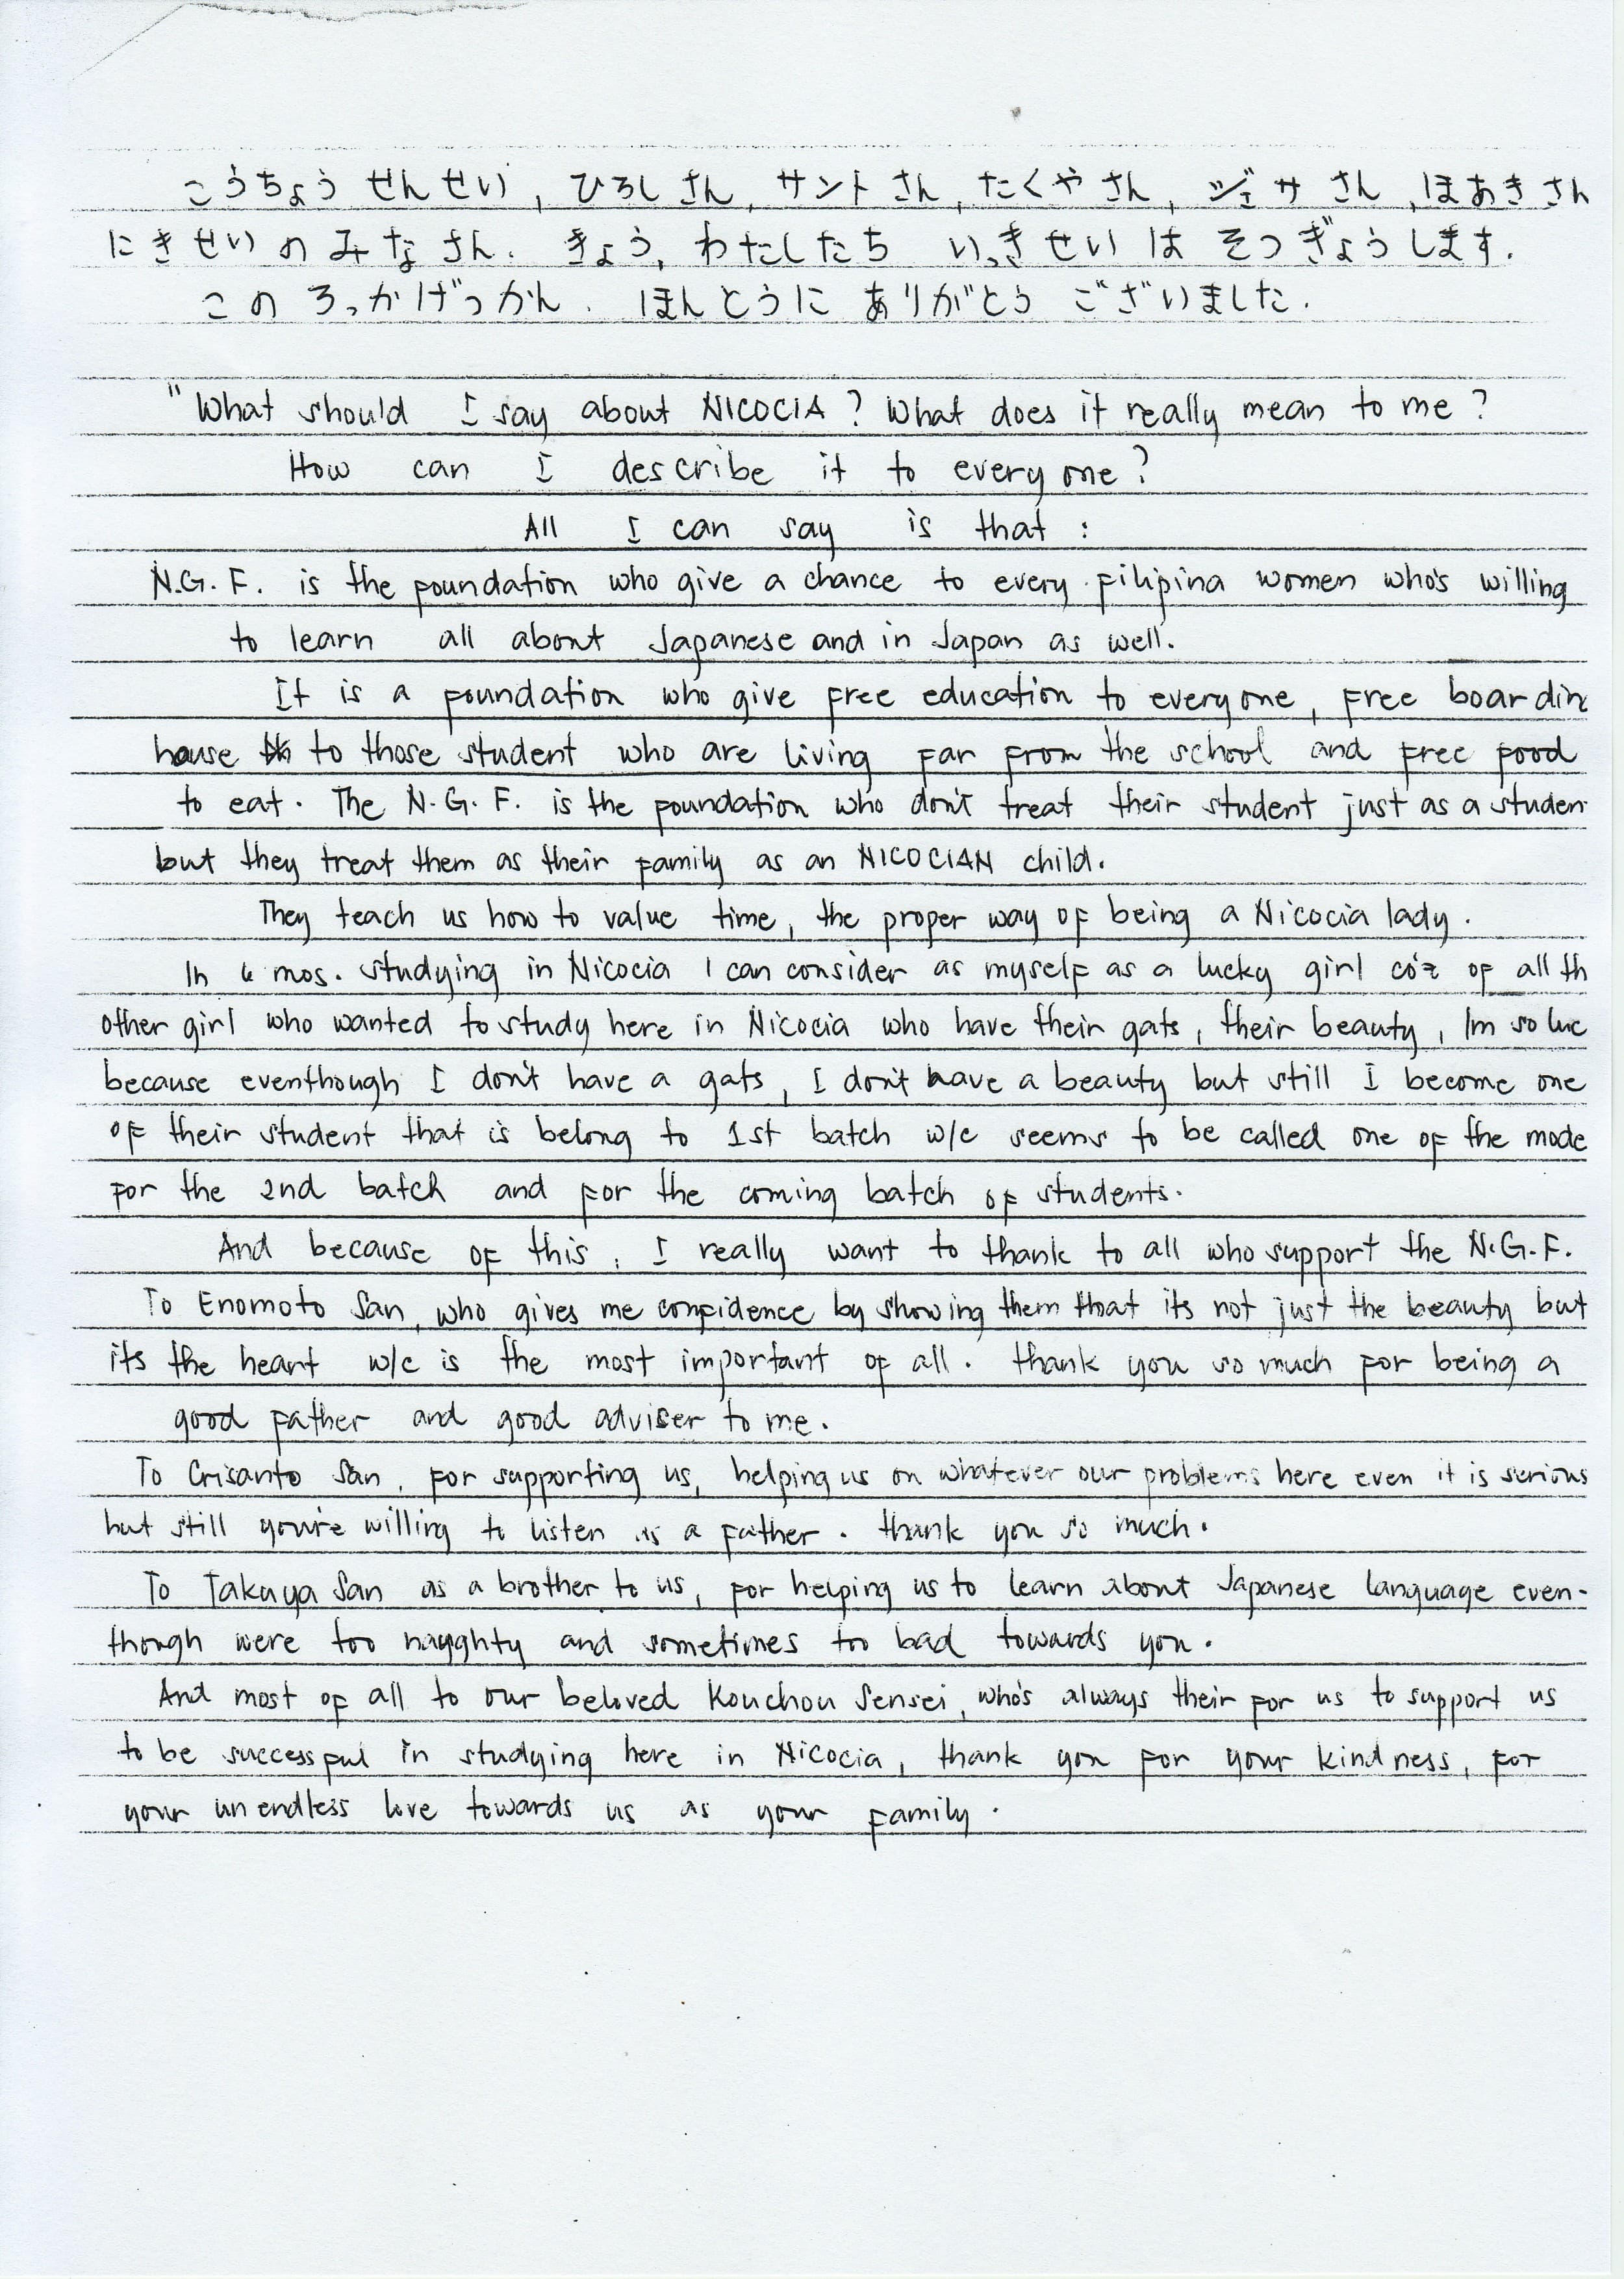 こうちょう せんせい, ひろし さん, サント さん, たくや さん, ジェサ さん, ほあき さん
にきせい の みなさん. きょう, わたしたち いっきせい は そつぎょうします.
この ろっかげつかん. ほんとうに ありがとう ございました.
"What should I say about NICOCIA? What does it really mean to me?
How can I describe it to everyone?
All I can say is that :
N.G.F. is the foundation who give a chance to every filipina women who's willing
to learn all about Japanese and in Japan as well.
It is a foundation who give free education to everyone, free boardin
house to those student who are living far from the school and free food
to eat. The N.G.F. is the foundation who don't treat their student just as a studen
but they treat them as their family as an NICOCIAN child.
They teach us how to value time, the proper way of being a Nicocia lady.
In 6 mos. studying in Nicocia I can consider as myself as a lucky girl co'z of all th
other girl who wanted to study here in Nicocia who have their gats, their beauty, Im so luc
because eventhough I don't have a gats, I don't have a beauty but still I become one
of their student that is belong to 1st batch w/c seems to be called one of the mode
for the 2nd batch and for the coming batch of students.
And because of this, I really want to thank to all who support the N.G.F.
To Enomoto San, who gives me confidence by showing them that its not just the beauty but
its the heart w/c is the most important of all. thank you so much for being a
good father and good adviser to me.
To Crisanto San, for supporting us, helping us on whatever our problems here even it is serious
but still you're willing to listen as a father. thank you so much.
To Takuya San as a brother to us, for helping us to learn about Japanese language even-
though were too nayghty and sometimes too bad towards you.
And most of all to our beloved Kouchou Sensei, who's always their for us to support us
to be successful in studying here in Nicocia, thank you for your kindness, for
your unendless love towards us as your family.